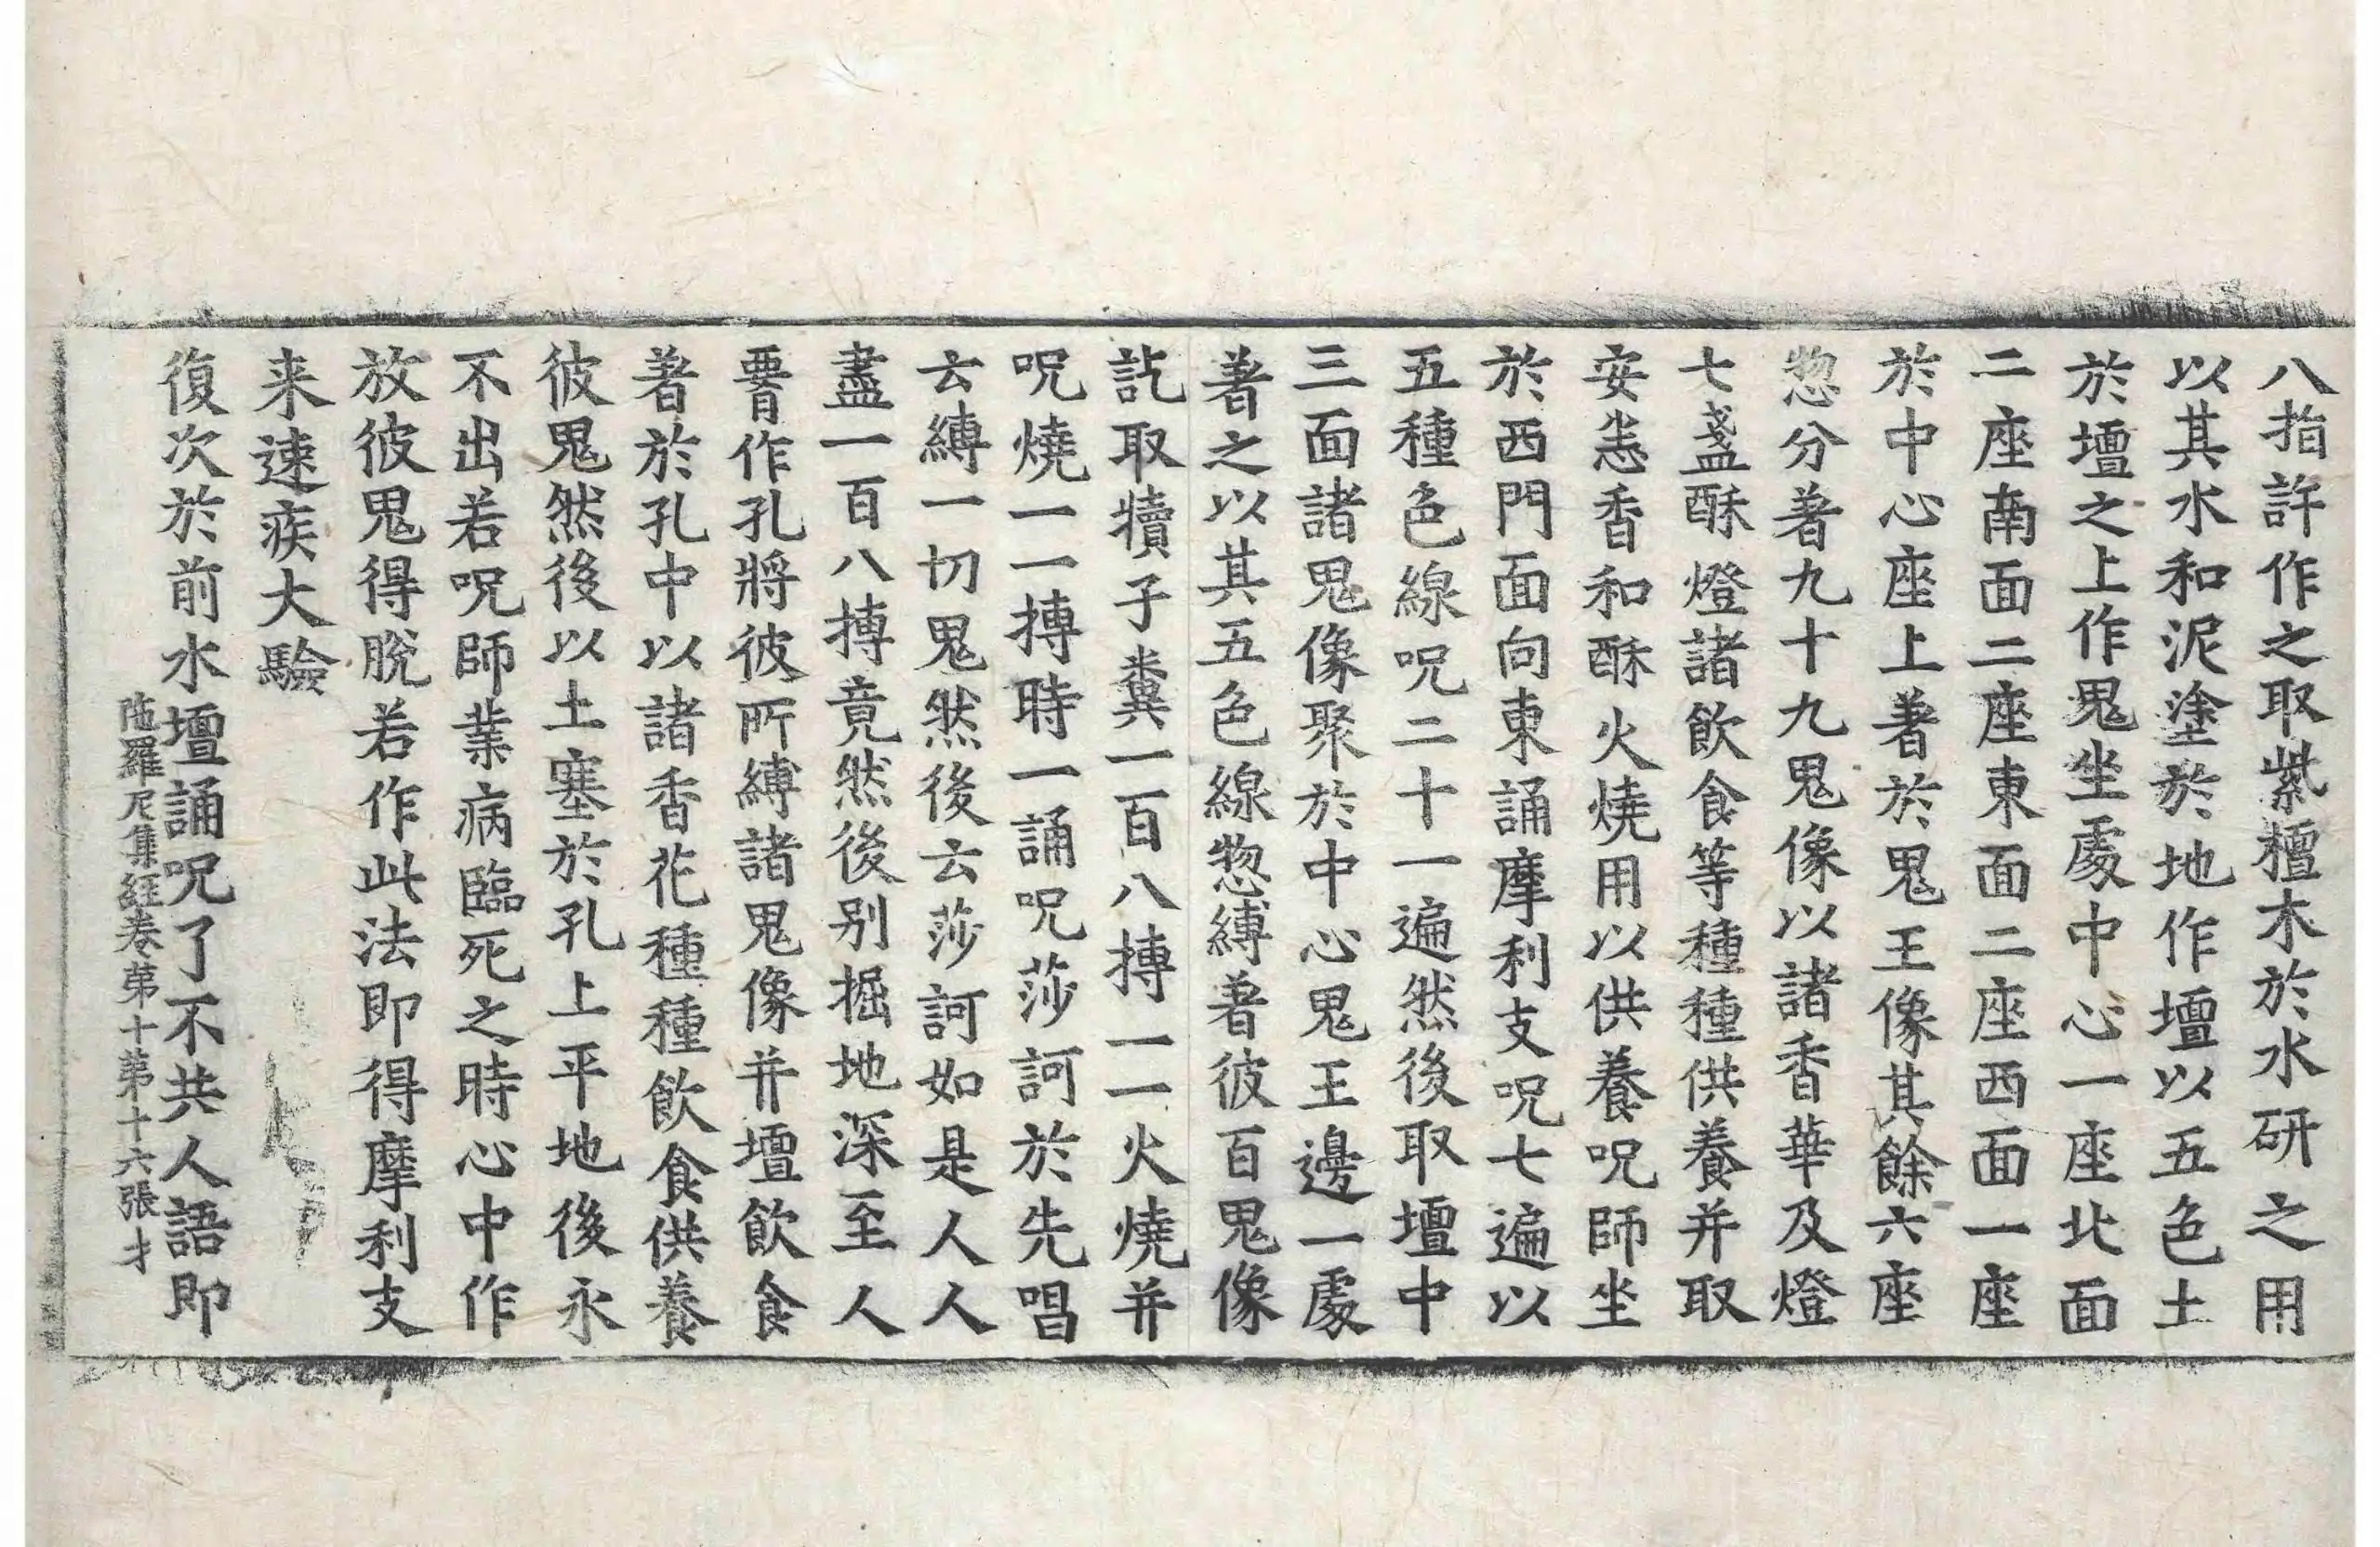 八指許作之取紫檀木於水研之用
以其水和泥塗於地作壇以五色土
於壇之上作鬼坐處中心一座北面
二座南面二座東面二座西面一座
於中心座上著於鬼王像其餘六座
惣分著九十九鬼像以諸香華及燈
七盞酥燈諸飲食等種種供養并取
安悉香和酥火燒用以供養呪師坐
於西門面向東誦摩利支呪七遍以
五種色線呪二十一遍然後取壇中
三面諸鬼像聚於中心鬼王邊一處
著之以其五色線惣縛著彼百鬼像
訖取犢子糞一百八摶一一火燒并
呪燒一一摶時一誦呪莎訶於先唱
云縛一切鬼然後云莎訶如是人人
盡一百八摶竟然後別掘地深至人
要作孔將彼所縛諸鬼像并壇飲食
著於孔中以諸香花種種飲食供養
彼鬼然後以土塞於孔上平地後永
不出若呪師業病臨死之時心中作
放彼鬼得脫若作此法即得摩利支
来速疾大驗
復次於前水壇誦呪了不共人語即
陁羅尼集経卷第十第十六張才